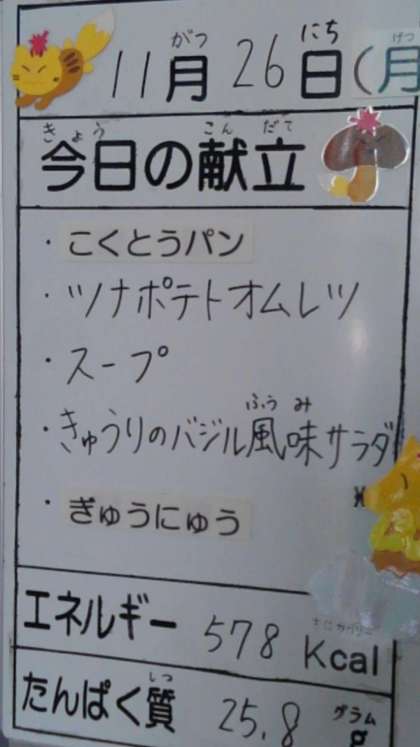 がつ にち げつ
11月 26日(月
きょう こんだて
今日の献立
・こくとうパン
・ツナポテトオムレツ
・スープ
ふうみ
・きゅうりのバジル風味サラダ
・ぎゅうにゅう
キロカロリー
エネルギー 578 Kcal
しつ グラム
たんぱく質 25.8 g